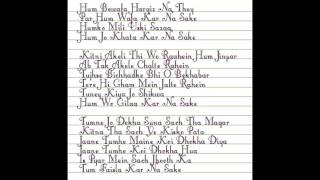 Hum Bewafa Hargiz Na They
Par Hum Wafa Kar Na Sake
Humko Mili Uski Sazaa
Hum Jo Khata Kar Na Sake
Kitni Akeli Thi Wo Raahein Hum Jinpar
Ab Tak Akele Chalte Rahein
Tujhse Bichhadke Bhi O Bekhabar
Tere Hi Gham Mein Jalte Rahein
Tuney Kiya Jo Shikwa
Hum Wo Gilaa Kar Na Sake
Tumne Jo Dekha Suna Sach Tha Magar
Kitna Tha Sach Ye Kisko Pata
Jaane Tumhe Maine Koi Dhokha Diya
Jaane Tumhe Koi Dhokha Hua
Is Pyar Mein Sach Jhooth Ka
Tum Faisla Kar Na Sake